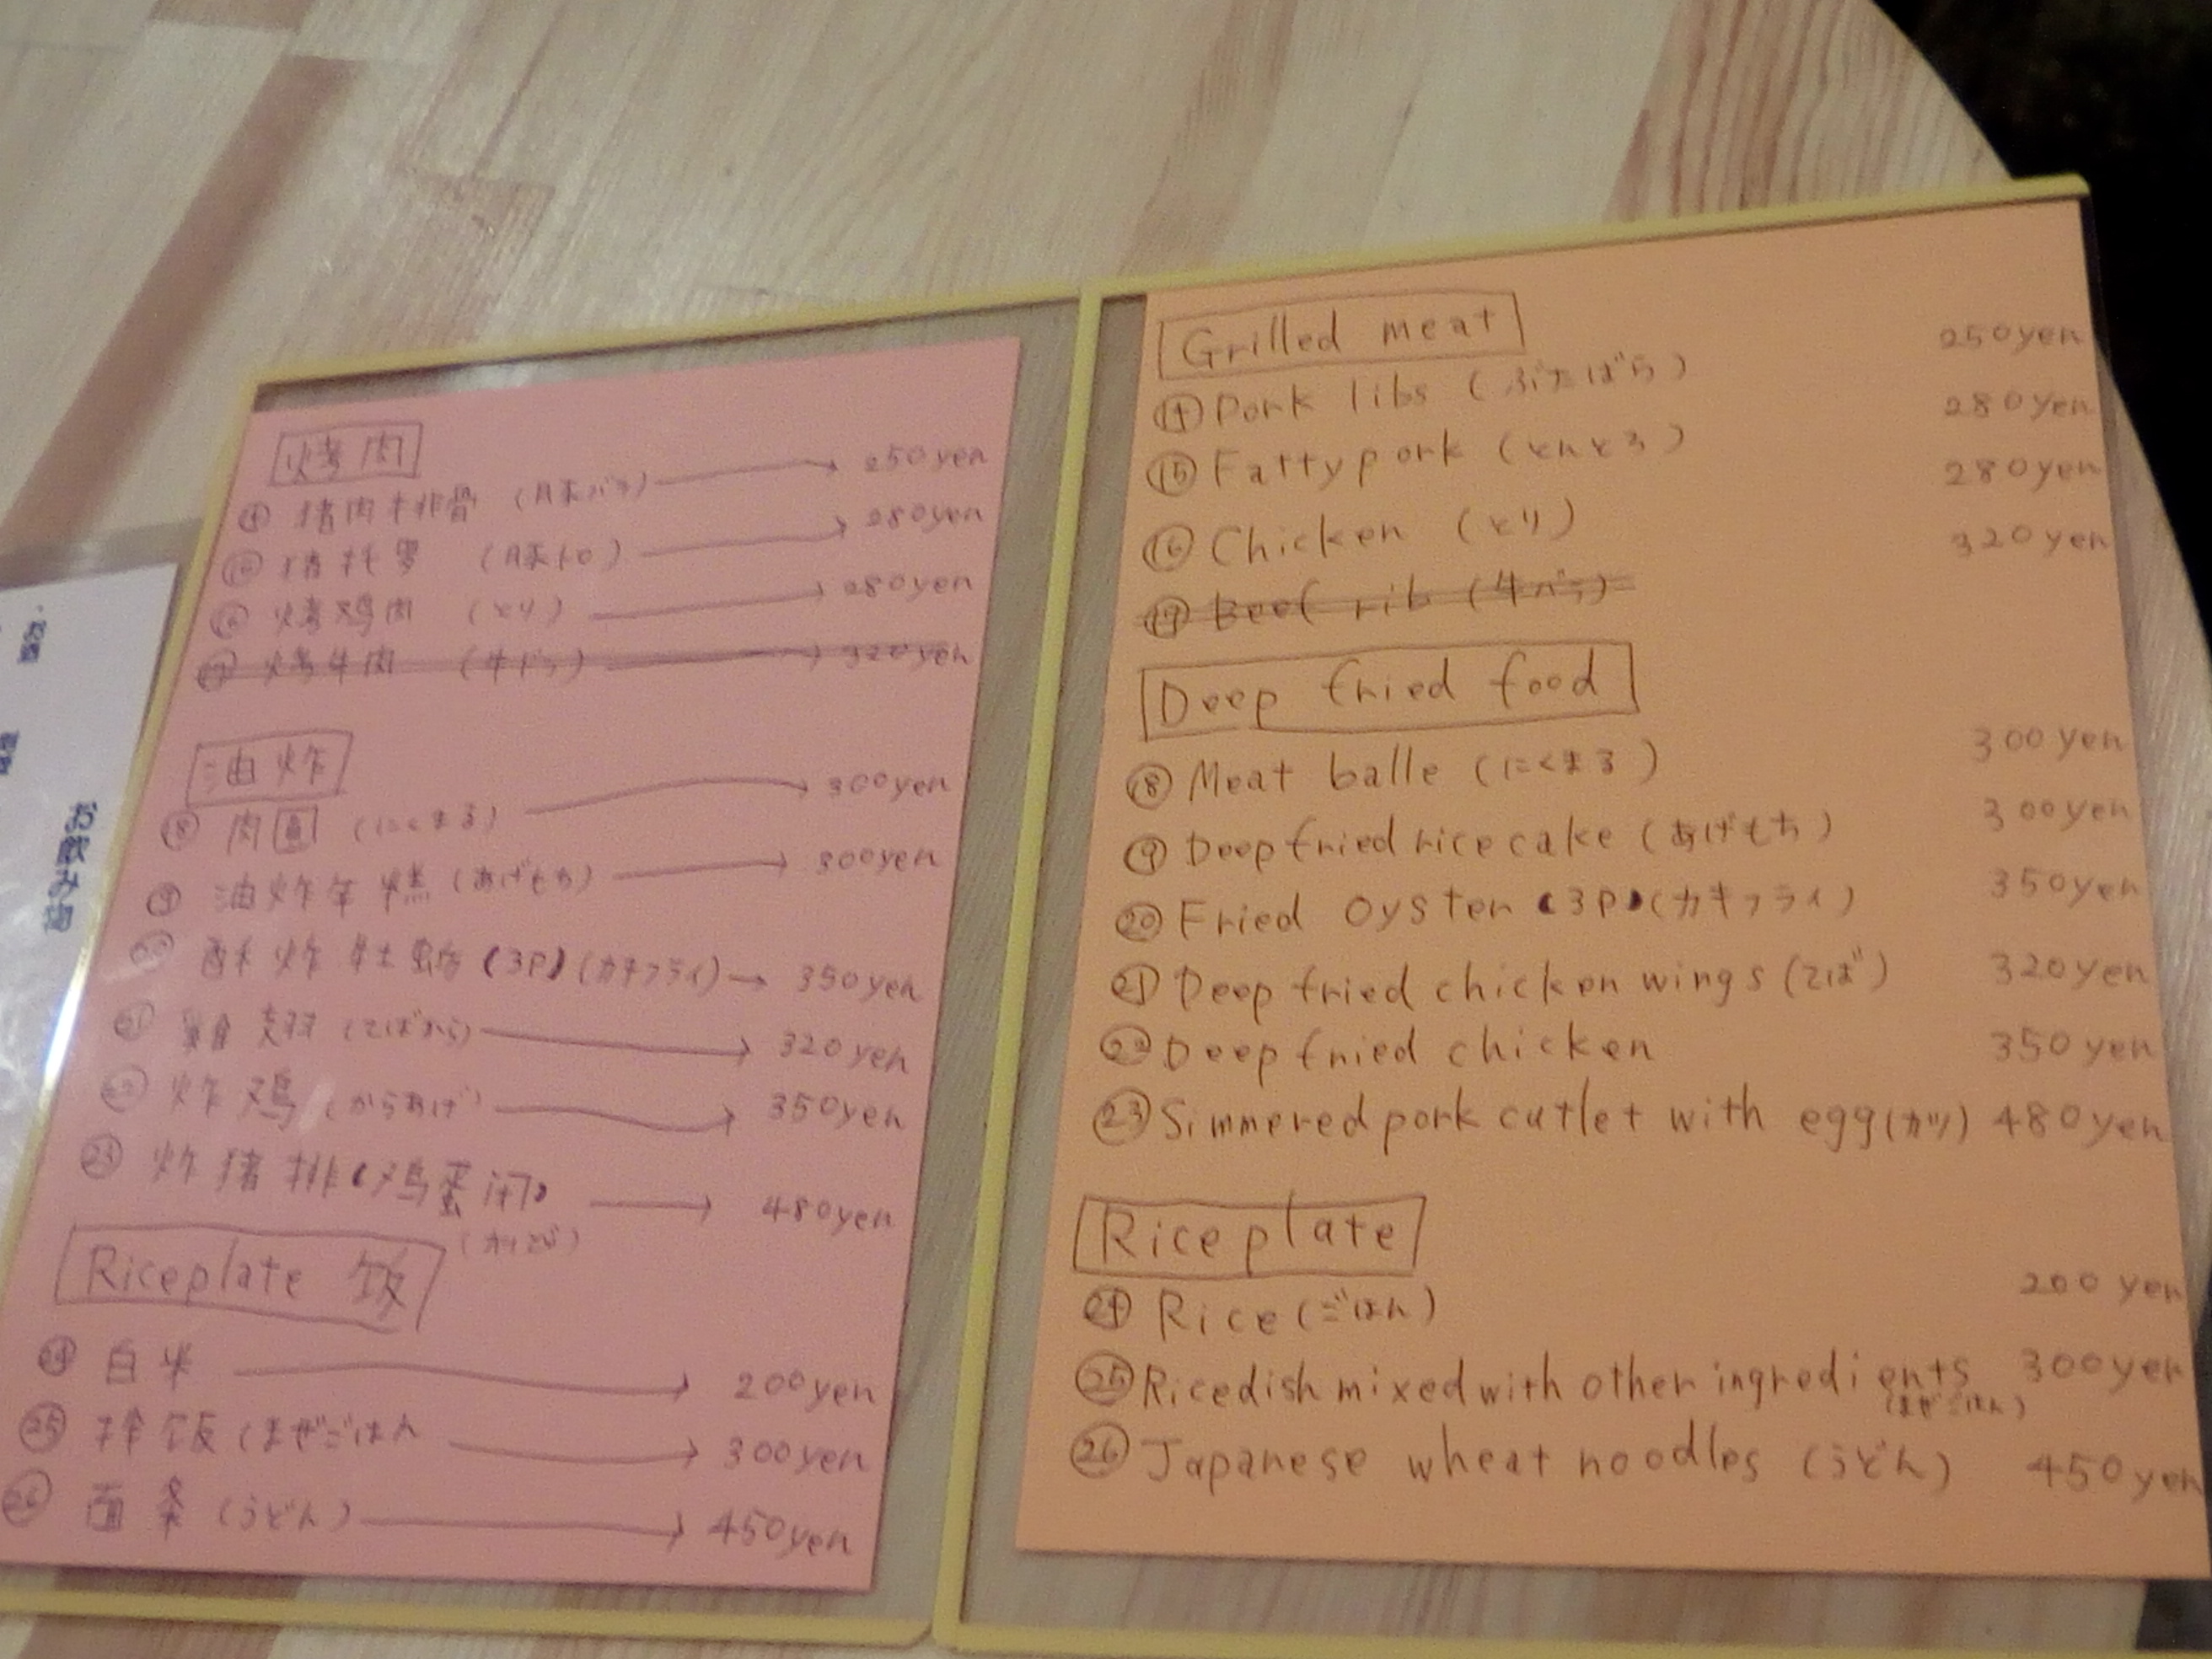 お飲み
烤肉
⑭ 猪肉牛排骨 (豚バラ) → 250yen
⑮ 猪托罗 (豚トロ) → 280yen
⑯ 烤鸡肉 (とり) → 280yen
⑰ 烤牛肉 (牛バラ) → 320yen
油炸
⑱ 肉圓 (にくまる) → 300yen
⑲ 油炸年糕 (あげもち) → 300yen
⑳ 酥炸牡蛎 (3P) (カキフライ) → 350yen
㉑ 雞翅 (てばから) → 320yen
㉒ 炸鸡 (からあげ) → 350yen
㉓ 炸猪排(鸡蛋汁) → 480yen
Riceplate 饭
㉔ 白米 → 200yen
㉕ 拌饭 (まぜごはん → 300yen
㉖ 面条 (うどん) → 450yen
Grilled meat
⑭ Pork libs (ぶたばら) 250yen
⑮ Fatty pork (とんとろ) 280yen
⑯ Chicken (とり) 280yen
⑰ Beef rib (牛バラ) 320yen
Deep fried food
⑱ Meat balle (にくまる) 300yen
⑲ Deep fried rice cake (あげもち) 300yen
⑳ Fried oyster (3P) (カキフライ) 350yen
㉑ Deep fried chicken wings (てば) 320yen
㉒ Deep fried chicken 350yen
㉓ Simmered pork cutlet with egg (カツ) 480yen
Rice plate
㉔ Rice (ごはん) 200yen
㉕ Ricedish mixed with other ingredients 300yen
(まぜごはん)
㉖ Japanese wheat noodles (うどん) 450yen